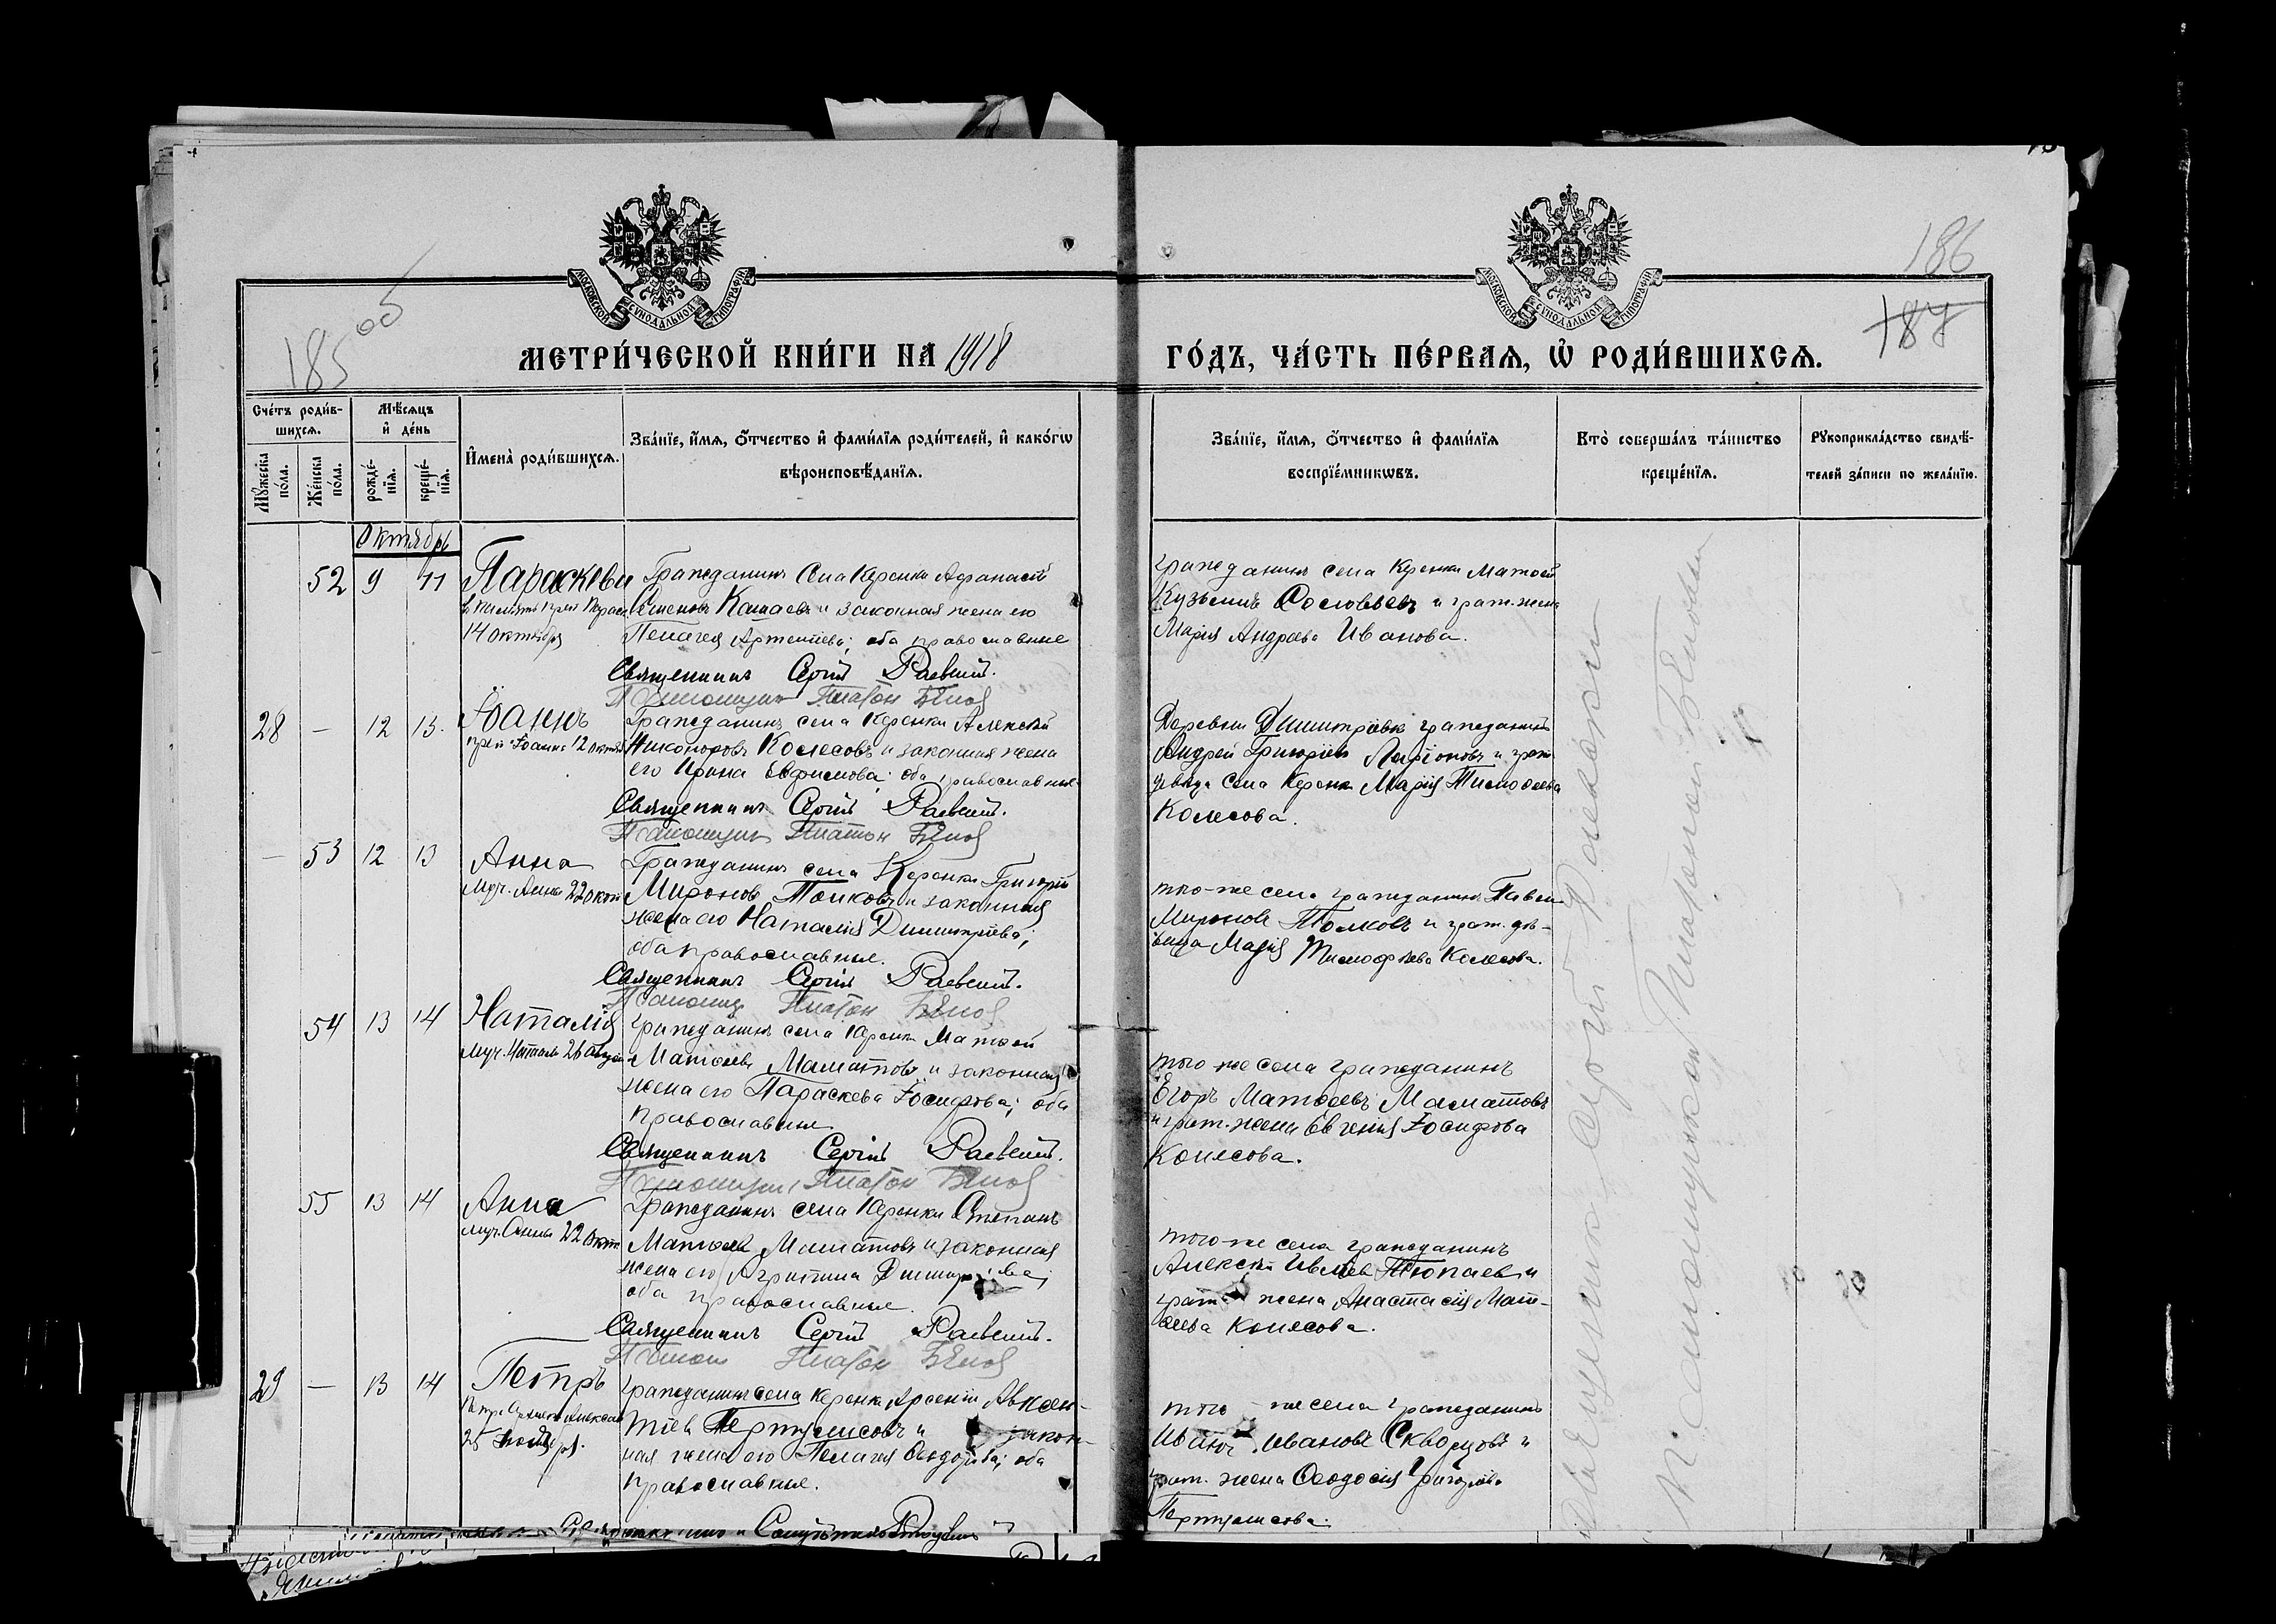 МОСКОВСКОЙ СУНОДАЛЬНОЙ ТИПОГРАФІИ
МОСКОВСКОЙ СУНОДАЛЬНОЙ ТИПОГРАФІИ
185 об
186
187
МЕТРИ́ЧЕСКОЙ КНИ́ГИ НА 1918
ГО́ДЪ, ЧА́СТЬ ПЕ́РВАѦ, Ѡ РОДИ́ВШИХСѦ.
Сче́тъ роди́в-
шихсѧ.
Мѣ́сѧцъ
и҆ де́нь
Мꙋ́жеска по́ла.
Же́нска по́ла.
рожде́-
нїѧ.
креще́-
нїѧ.
И҆мена̀ роди́вшихсѧ.
Зва́нїе, и҆́мѧ, ѻ҆́тчество и҆ фами́лїѧ роди́телей, и҆ како́гѡ
вѣроисповѣ́данїѧ.
Зва́нїе, и҆́мѧ, ѻ҆́тчество и҆ фами́лїѧ
воспрїе́мникѡвъ.
Кто̀ соверша́лъ та́инство
креще́нїѧ.
Рꙋкоприкла́дство свидѣ́-
телей за́писи по жела́нїю.
Октябрь
52 9 11 Параскева
14 октября
Гражданинъ села Керенки Афанасій
Семеновъ Катаевъ и законная жена его
Пелагея Артемьева; оба православные
Священникъ Сергій Раевскій.
Псаломщикъ Платонъ Бѣлов
гражданинъ села Керенки Матѳей
Кузьминъ Соловьевъ и граж. жена
Марія Андреева Иванова.
28 — 12 13 Іоаннъ
преп. Іоанна 12 октяб
Гражданинъ села Керенки Алексѣй
Никоноровъ Колесовъ и законная жена
его Ирина Евфимова; оба православные
Священникъ Сергій Раевскій.
Псаломщикъ Платон Бѣлов
Деревни Димитріевки гражданинъ
Андрей Григорьевъ Ларіоновъ и граж.
дѣвица села Керенки Марія Тимоѳеева
Колесова.
— 53 12 13 Анна
муч. Анны 22 окт
Гражданинъ села Керенки Григорій
Мироновъ Толковъ и законная
жена его Наталія Димитріева;
оба православные.
Священникъ Сергій Раевскій.
Псаломщ Платон Бѣлов
того-же села гражданинъ Павелъ
Мироновъ Толковъ и граж. дѣ-
вица Марія Тимофѣева Колесова.
54 13 14 Наталія
муч. Наталіи 26 август
гражданинъ села Керенки Матѳей
Матѳеевъ Маматовъ и законная
жена его Параскева Іосифова; оба
православные
Священникъ Сергій Раевскій.
Псаломщик Платон Бѣлов
того же села гражданинъ
Егоръ Матѳеевъ Маматовъ
и граж. жена Евгенія Іосифова
Колесова.
55 13 14 Анна
муч. Анны 22 окт
Гражданинъ села Керенки Степанъ
Матѳеевъ Маматовъ и законная
жена его Агриппина Димитріева;
оба православные.
Священникъ Сергій Раевскій.
Псалом Платон Бѣлов
того-же села гражданинъ
Алексѣй Ивлевъ Тюпаевъ и
граж. жена Анастасія Мат-
ѳеева Колесова.
29 — 13 14 Петръ
25 ноября.
гражданинъ села Керенки Арсеній Авксен-
тіевъ Пертулисовъ и закон-
ная жена его Пелагея Ѳеодорова; оба
православные.
того же села гражданинъ
Иванъ Ивановъ Скворцовъ и
граж. жена Ѳеодосія Григорьева
Пертулисова.
Священникъ Сергій Раевскій
Псаломщикъ Платонъ Бѣловъ